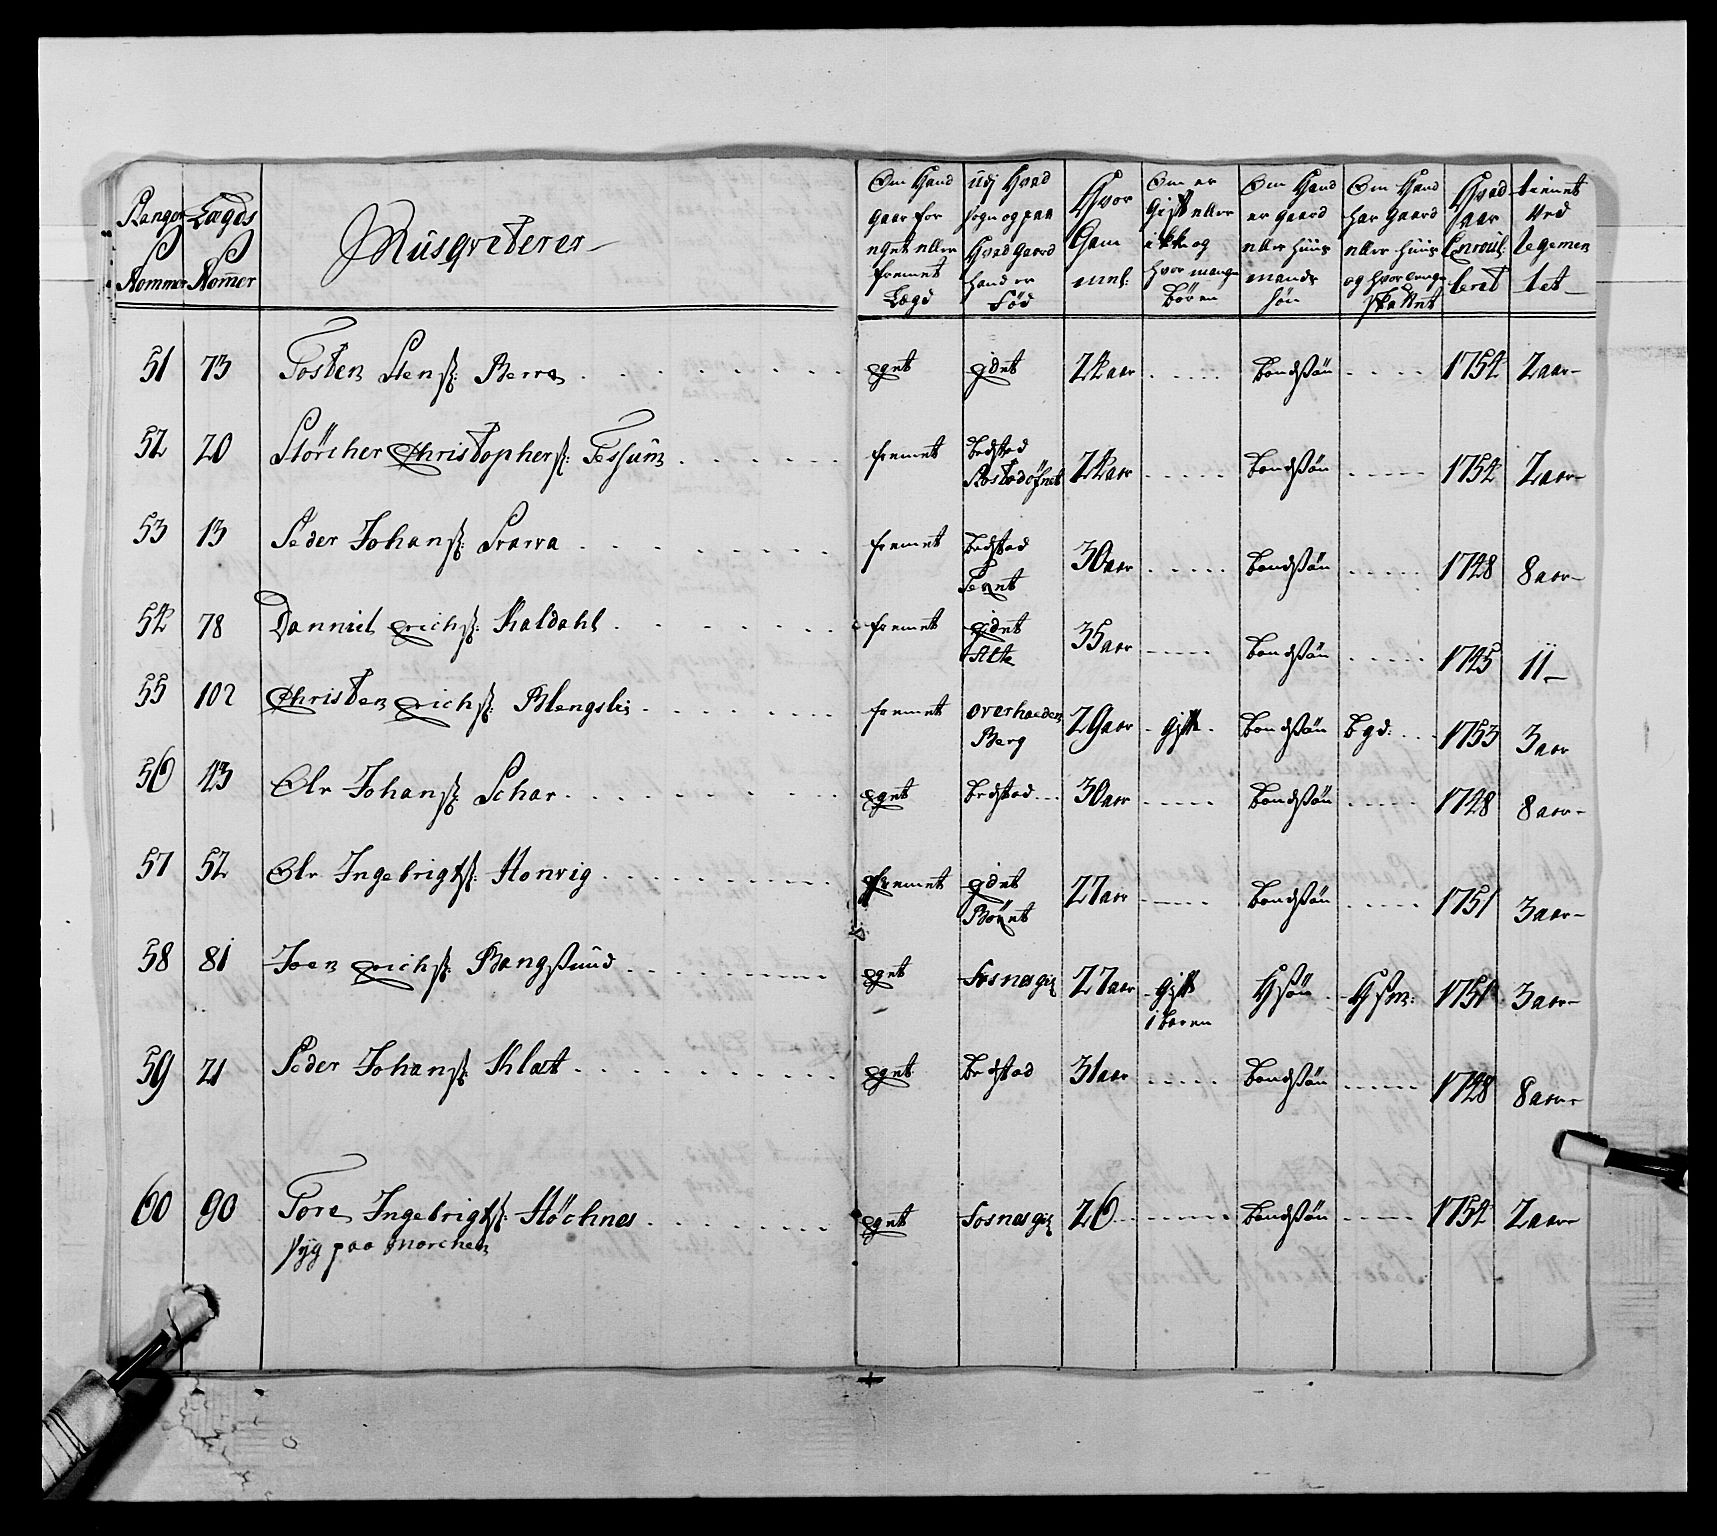 Rangs Nommer
Lægds Nom̄er
Musqveterer
Om Hand gaar for eget eller fremet Lægd
udj Hvad sogn og paa Hvad gaard hand er Fød
Hvor Gam̄el
Om er gift eller ikke og hvor mange Børen
Om Hand er gaard eller huus mands søn
Om Hand har gaard eller huus og hvor længe
Hvad aar Enroulleret
tiennt ved Regementet
51 73 Tosten Stenss: Berre eget Eidet 24 aar Bondssøn 1754 2 aar
52 20 Störcher Christophers: Fessum fremet Bedstad 24 aar Bondssøn 1754 2 aar
53 13 Peder Johanss: Svarva fremet Bedstad 30 aar Bondssøn 1748 8 aar
54 78 Danniel Erichs: Kaldahl fremet Eidet 35 aar Bondssøn 1745 11
55 102 Christen Erichs: Blengslie fremet Overhalden Berg 29 aar gift Bondssøn Bgd: 1753 3 aar
56 43 Ole Johanss: Schar eget Bedstad 30 aar Bondssøn 1748 8 aar
57 52 Ole Ingebrigts: Honvig fremet Eidet 27 aar Bondssøn 1751 3 aar
58 81 Joen Erichs: Bangssund eget Fosnes 27 aar gift 1 Baren Hssøn Hsm: 1751 3 aar
59 21 Peder Johanss: Klæt eget Bedstad 31 aar Bondssøn 1748 8 aar
60 90 Tore Ingebrigts: Höchnes eget Fosnes 26 Bondssøn 1754 2 aar
syg paa Marchen